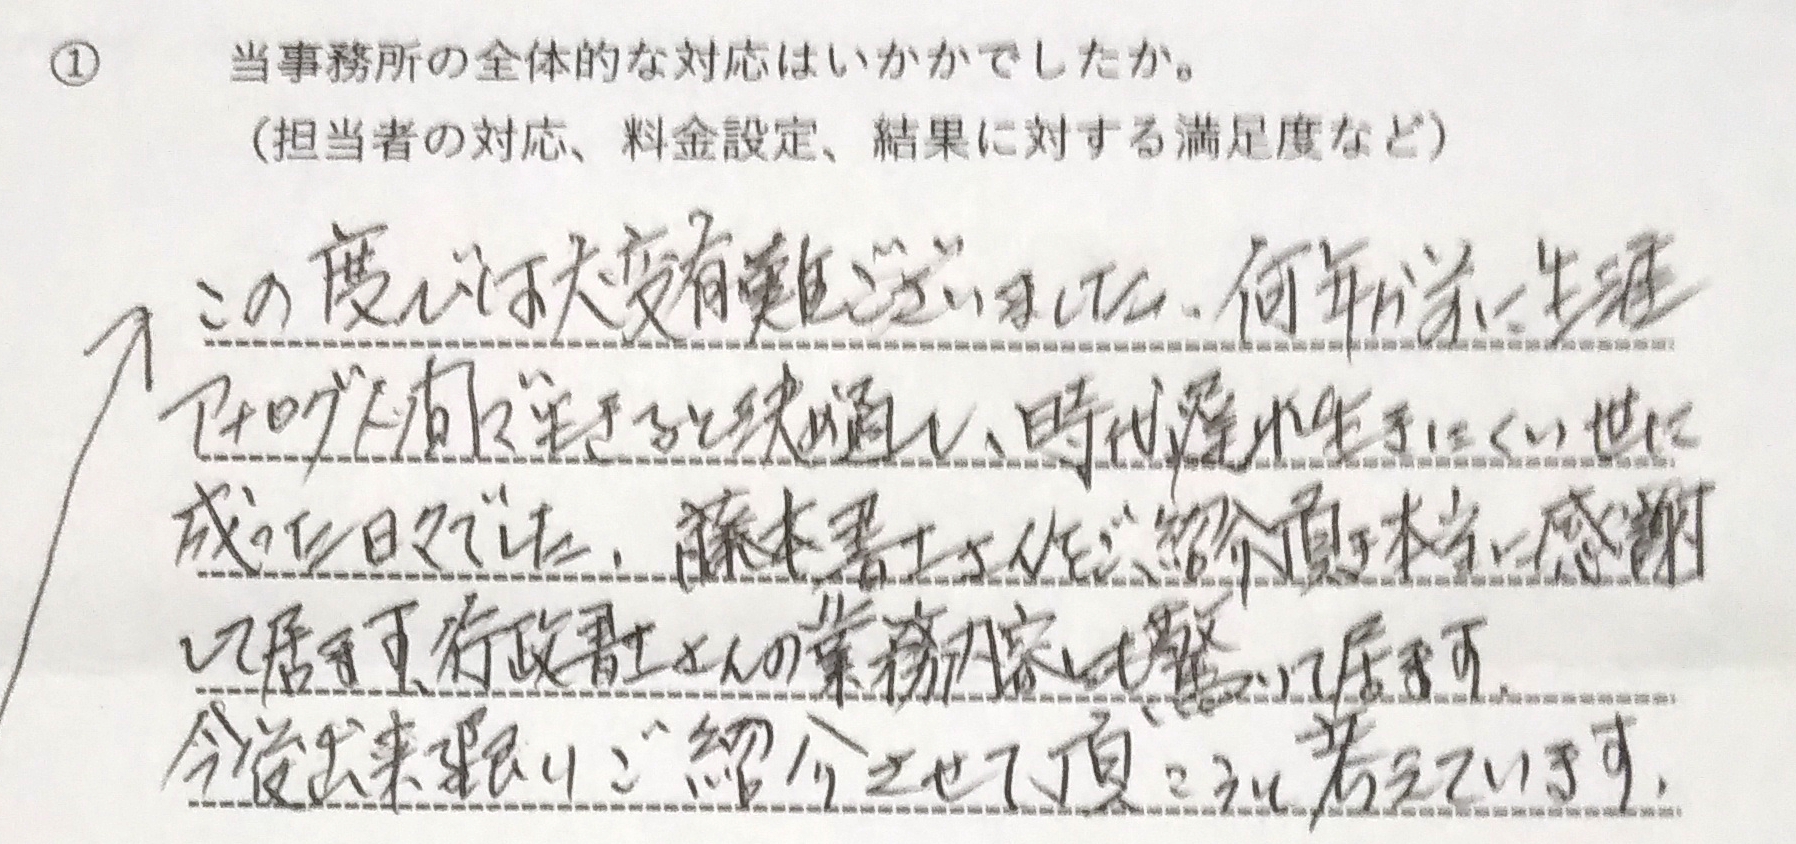 ① 当事務所の全体的な対応はいかかでしたか。
(担当者の対応、料金設定、結果に対する満足度など)
この度びは大変有難ございました。何年か前に生涯
アナログ人間で生きると決め通し、時代遅れ生きにくい世に
成った日々でした。藤本書士さんをご紹介頂き本当に感謝
して居ます、行政書士さんの業務内容にも驚いて居ます。
今後出来る限りご紹介させて頂こうと考えています。